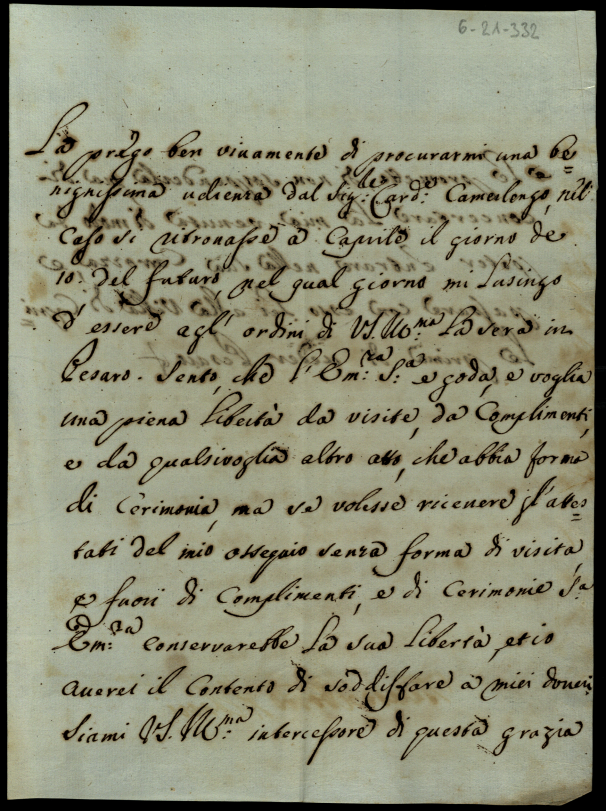 6-21-332
La prego ben viuamente di procurarmi una be=
nignissima udienza dal Sig.r Card.le Camerlengo, nel
caso si ritrouasse à Caprile il giorno de
10. del futuro, nel qual giorno mi lusingo
d'essere agl'ordini di VS. Ill.ma la sera in
Pesaro. Sento, che l'Em.za S.a e goda, e voglia
una piena libertà da visite, da Complimenti,
e da qualsivoglia altro atto, che abbia forma
di Cerimonia, ma se volesse riceuere gl'attes=
tati del mio ossequio senza forma di visita,
e fuori di Complimenti, e di Cerimonie S.a
Em.za conservarebbe la sua libertà, et io
auerei il contento di soddisfare a miei doueri
Siami VS. Ill.ma intercessore di questa grazia